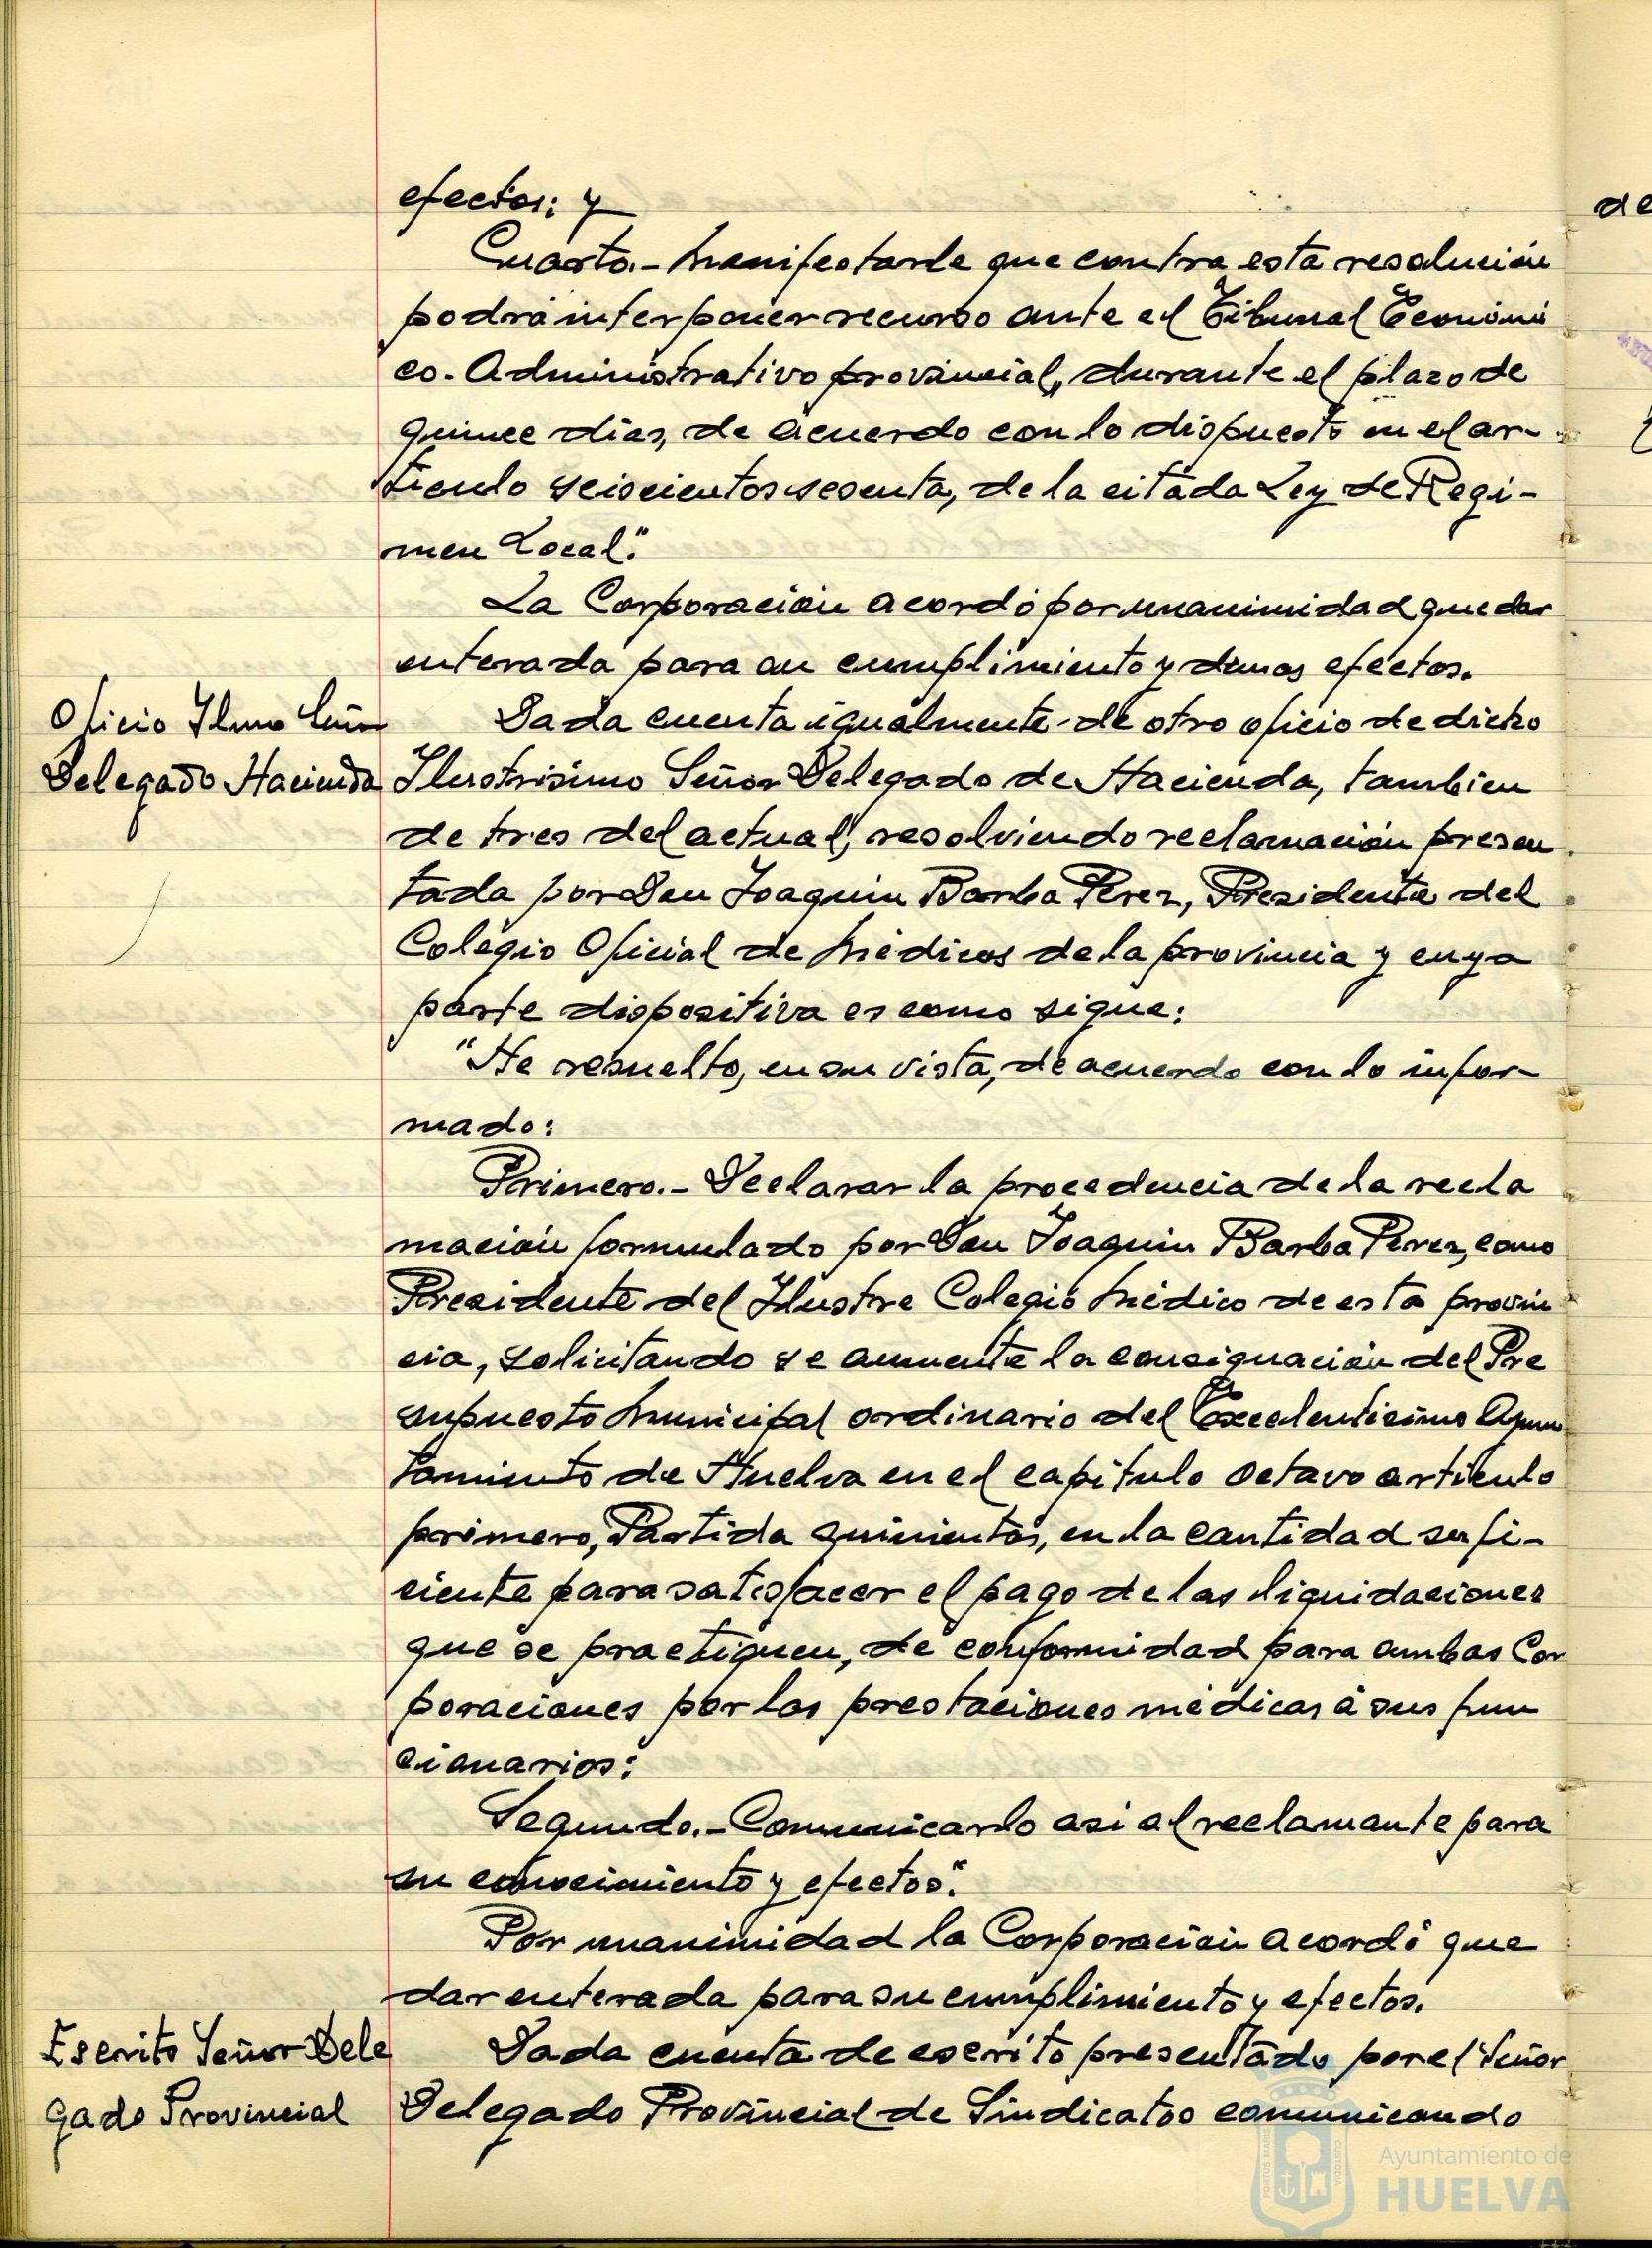 efectos; y
Cuarto.- Manifestarle que contra esta resolución
podrá interponer recurso ante el Tribunal Económi
co. Administrativo provincial, durante el plazo de
quince días, de acuerdo con lo dispuesto en el ar-
tículo seiscientos sesenta, de la citada Ley de Regi-
men Local".
La Corporación acordó por unanimidad quedar
enterada para su cumplimiento y demas efectos.
Oficio Ilmo Señor
Delegado Hacienda
Dada cuenta igualmente de otro oficio de dicho
Ilustrísimo Señor Delegado de Hacienda, tambien
de tres del actual, resolviendo reclamación presen
tada por Don Joaquin Barba Perez, Presidente del
Colegio Oficial de Médicos de la provincia y cuya
parte dispositiva es como sigue:
"He resuelto, en su vista, de acuerdo con lo infor-
mado:
Primero.- Declarar la procedencia de la recla
mación formulado por Don Joaquin Barba Perez, como
Presidente del Ilustre Colegio Médico de esta provin
cia, solicitando se aumente la consignación del Pre
supuesto Municipal ordinario del Excelentísimo Ayun
tamiento de Huelva en el capítulo octavo artículo
primero, Partida quinientos, en la cantidad sufi-
ciente para satisfacer el pago de las liquidaciones
que se practiquen, de conformidad para ambas Cor
poraciones por las prestaciones médicas a sus fun
cionarios:
Segundo.- Comunicarlo asi al reclamante para
su conocimiento y efectos".
Por unanimidad la Corporación acordó que
dar enterada para su cumplimiento y efectos.
Escrito Señor Dele
gado Provincial
Dada cuenta de escrito presentado por el Señor
Delegado Provincial de Sindicatos comunicando
de
Ayuntamiento de
HUELVA